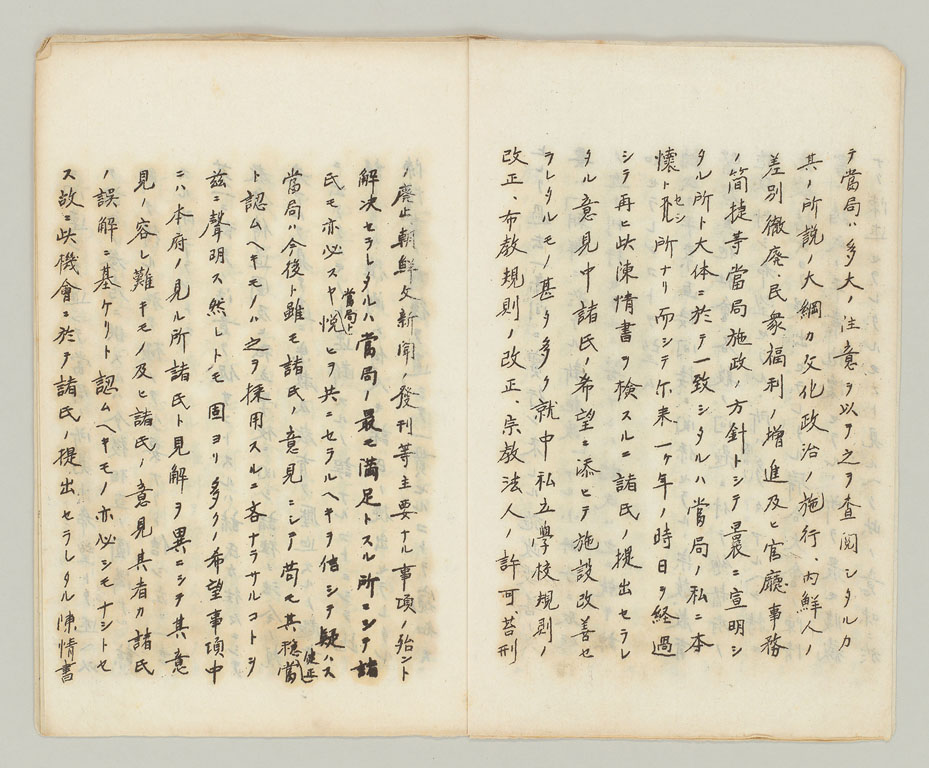 テ當局ハ多大ノ注意ヲ以テ之ヲ査閲シタルカ
其ノ所説ノ大綱カ文化政治ノ施行、内鮮人ノ
差別徹廢、民衆福利ノ増進及ヒ官廳事務
ノ簡捷等當局施政ノ方針トシテ曩ニ宣明シ
タル所ト大体ニ於テ一致シタルハ當局ノ私ニ本
懷トセシ所ナリ而シテ尓来一ケ年ノ時日ヲ経過
シテ再ヒ此陳情書ヲ檢スルニ諸氏ノ提出セラレ
タル意見中諸氏ノ希望ニ添ヒテ施設改善セ
ラレタルモノ甚タ多ク就中私立學校規則ノ
改正、布教規則ノ改正、宗教法人ノ許可笞刑
ノ廢止朝鮮文新聞ノ發刊等主要ナル事項ノ殆ント
解决セラレタルハ當局ノ最モ満足トスル所ニシテ諸
氏モ亦必スヤ當局ト悦ヒヲ共ニセラルヘキヲ信シテ疑ハス
當局ハ今後ト雖モ諸氏ノ意見ニシテ苟モ其穏當健正
ト認ムヘキモノハ之ヲ採用スルニ吝ナラサルコトヲ
玆ニ聲明ス然レトモ固ヨリ多クノ希望事項中
ニハ本府ノ見ル所諸氏ト見解ヲ異ニシテ其意
見ノ容レ難キモノ及ヒ諸氏ノ意見其者カ諸氏
ノ誤解ニ基ケリト認ムヘキモノ亦必シモナシトセ
ス故ニ此機會ニ於テ諸氏ノ提出セラレタル陳情書